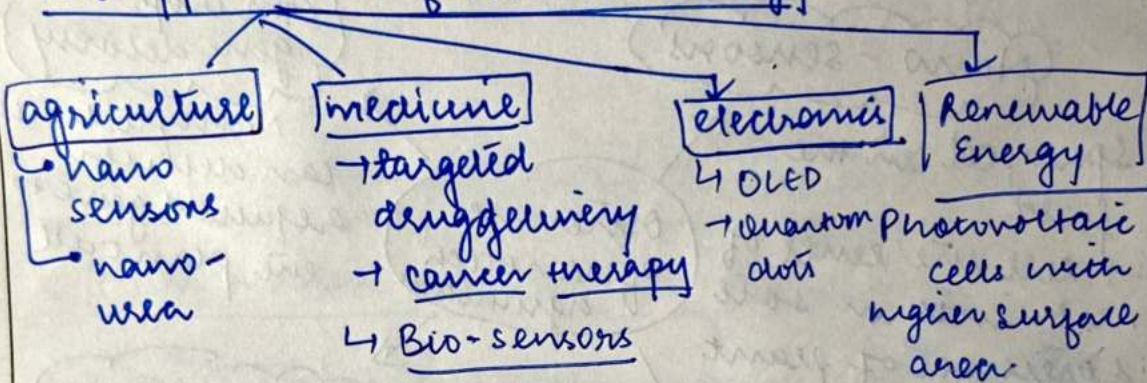 agriculture
nano
sensors
nano-
urea
medicine
→ targeted
drug delivery
→ cancer therapy
↳ Bio-sensors
electronics
↳ OLED
→ Quantum
dots
Renewable
Energy
Photovoltaic
cells with
higher surface
area.